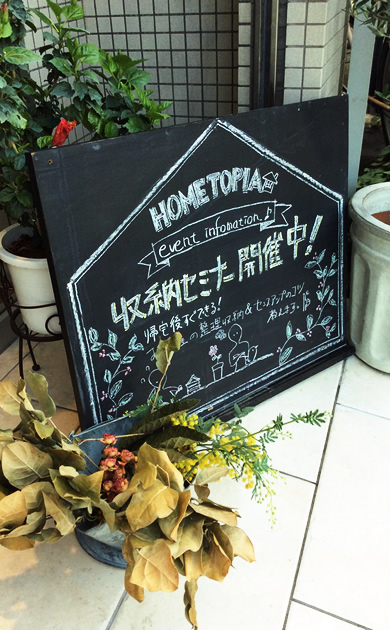 HOMETOPIA
event infomation ♪
収納セミナー開催中!
帰宅後すぐできる!
の整理収納&セルフアップのコツ
教えます